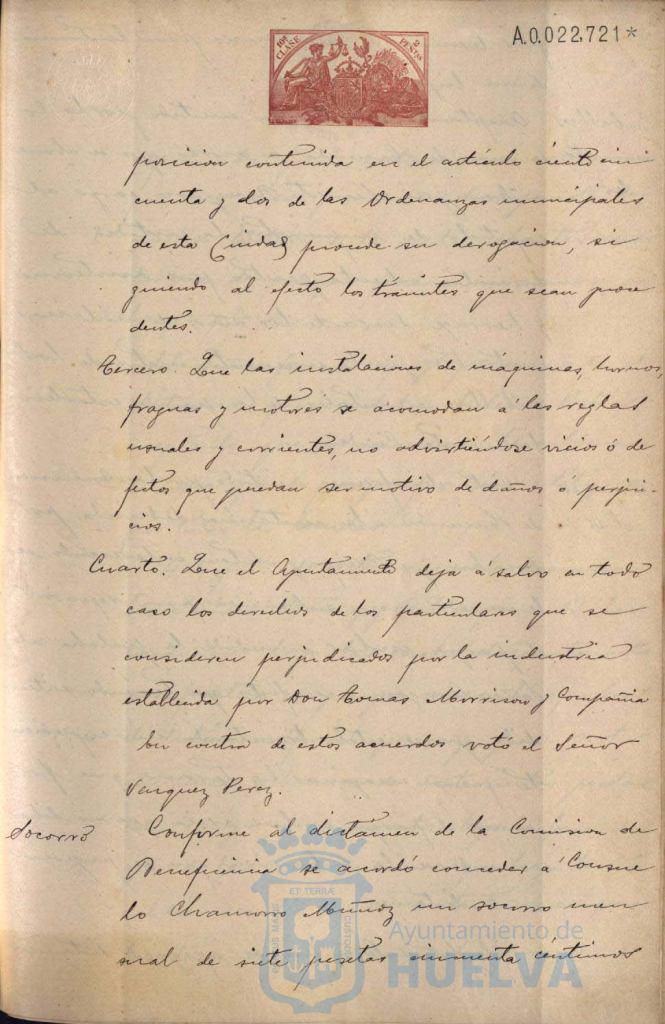 10ª CLASE
2 PESETAS
A.0.022,721*
posicion contenida en el artículo ciento cin
cuenta y dos de las Ordenanzas municipales
de esta Ciudad procede su derogacion, si
guiendo al efecto los trámites que sean proce
dentes.
Tercero. Que las instalaciones de máquinas, hornos,
fraguas y motores se acomodan á las reglas
usuales y corrientes, no advirtiéndose vicios ó de
fectos que puedan ser motivo de daños ó perjui-
cios.
Cuarto. Que el Ayuntamiento deja á salvo en todo
caso los derechos de los particulares que se
consideren perjudicados por la industria
establecida por Don Tomas Morrison y Compañia
En contra de estos acuerdos votó el Señor
Vazquez Perez.
Socorro
Conforme al dictamen de la Comision de
Beneficencia se acordó conceder á Consue
lo Chamorro Muñoz un socorro men
sual de siete pesetas cincuenta céntimos
ET TERRÆ
CUSTODIA
PORTUS MARIS
Ayuntamiento de
HUELVA